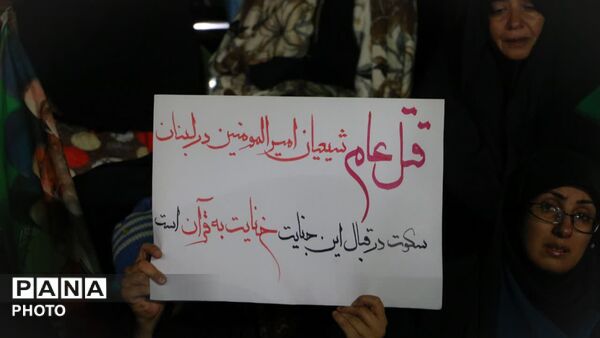 قتل عام شیعیان امیرالمومنین در لبنان
سکوت در قبال این جنایت جنایت به قرآن است
PANA
PHOTO